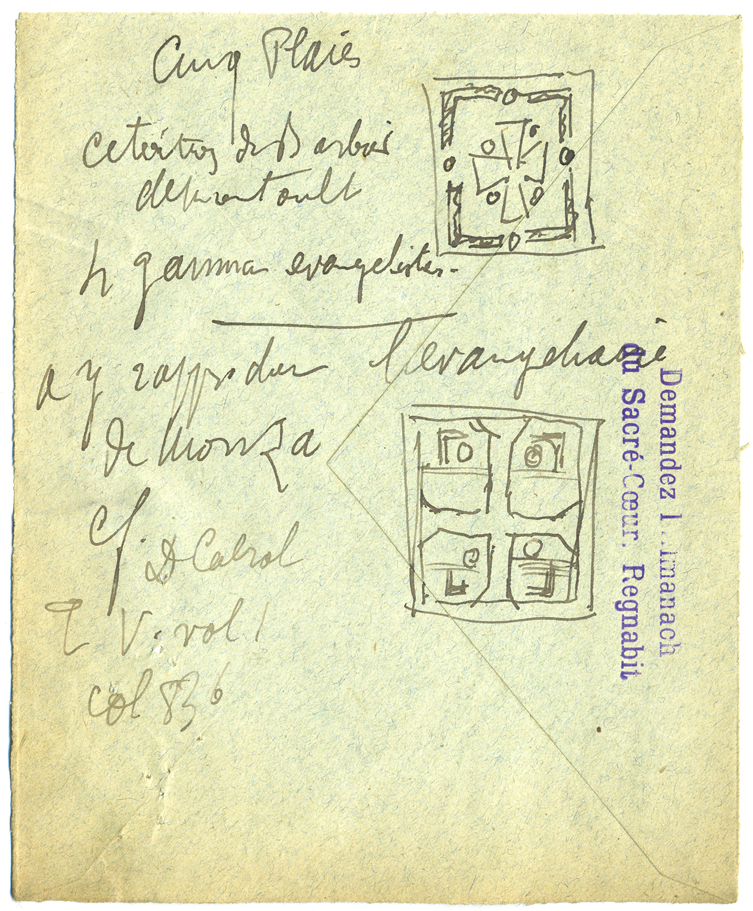 Cinq Plaies
de
4 gamma evangelistes.
a y l'evangeliaire
de Monza
cf. D Cabrol
T V. vol 1
col 836
Demandez l'Almanach
du Sacré-Cœur. Regnabit